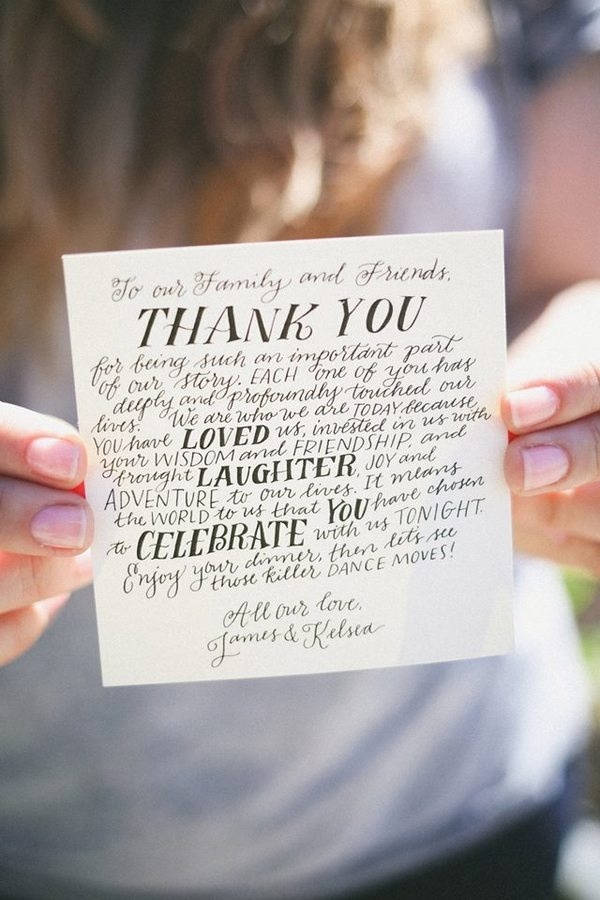 To our Family and Friends,
THANK YOU
for being such an important part
of our story. EACH one of you has
deeply and profoundly touched our
lives. We are who we are TODAY because
YOU have LOVED us, invested in us with
your WISDOM and FRIENDSHIP, and
brought LAUGHTER, JOY and
ADVENTURE to our lives. It means
the WORLD to us that YOU have chosen
to CELEBRATE with us TONIGHT.
Enjoy your dinner, then let's see
those killer DANCE MOVES!
All our love,
James & Kelsea